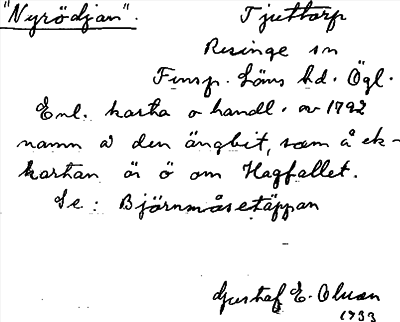 "Nyrödjan".
Tjuttorp
Risinge sn
Finsp. Läns hd. Ögl.
Enl. karta o handl. av 1792
namn å den ängbit, som å ek-
kartan är ö om Hagfallet.
Se: Björnmåsetäppan
Gustaf E. Olsson
1933